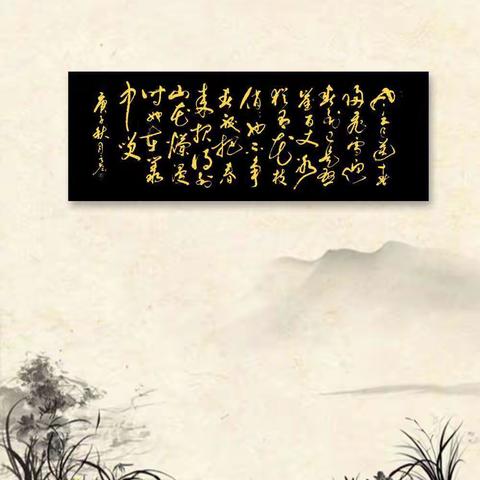 风雨送春
归飞雪迎
春到已是悬
崖百丈冰
犹有花枝
俏也不争
春祇把春
来报待到
山花烂漫
时她在丛
中笑
庚子秋月